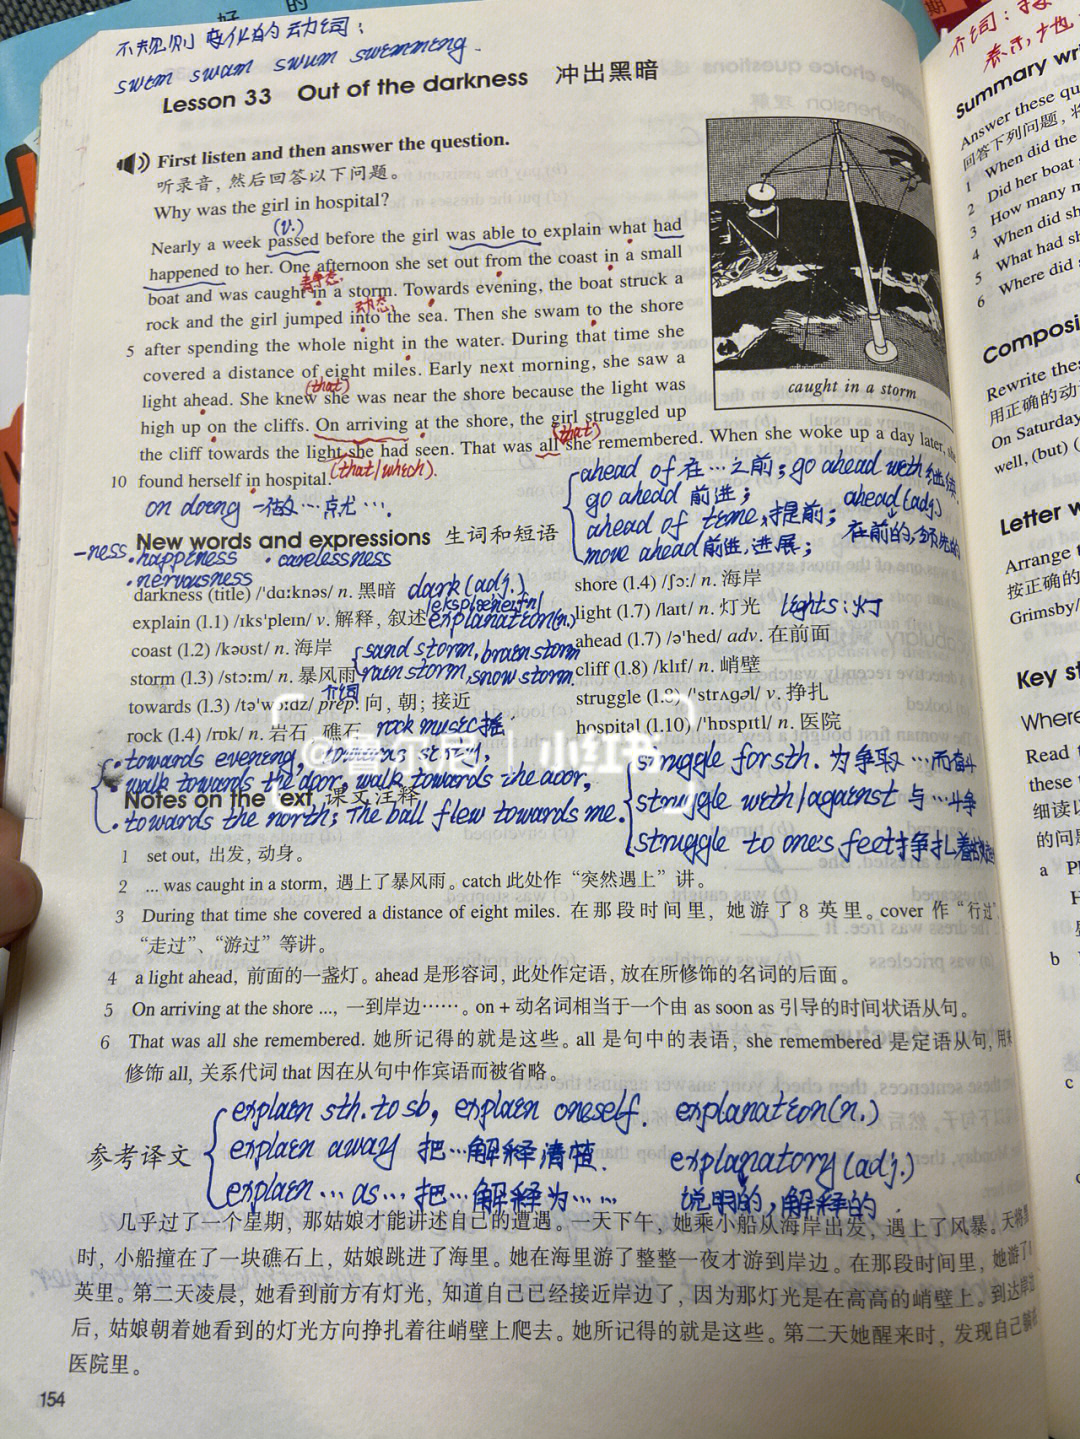 不规则变化的动词：
swim swam swum swimming.
Lesson 33 Out of the darkness 冲出黑暗
First listen and then answer the question.
听录音，然后回答以下问题。
Why was the girl in hospital?
(v.)
Nearly a week passed before the girl was able to explain what had
happened to her. One afternoon she set out from the coast in a small
静态
boat and was caught in a storm. Towards evening, the boat struck a
动态
rock and the girl jumped into the sea. Then she swam to the shore
5 after spending the whole night in the water. During that time she
covered a distance of eight miles. Early next morning, she saw a
(that)
light ahead. She knew she was near the shore because the light was
high up on the cliffs. On arriving at the shore, the girl struggled up
(that)
the cliff towards the light she had seen. That was all she remembered. When she woke up a day later, she
(that/which).
10 found herself in hospital.
caught in a storm
on doing 一做…就….
ahead of 在…之前; go ahead with 继续
go ahead 前进;
ahead (adj)
ahead of time, 提前;
在前的,领先的
move ahead 前进,进展;
New words and expressions 生词和短语
-ness
·happiness ·carelessness
·nervousness
darkness (title) /'dɑ:knəs/ n. 黑暗 dark (adj.)
explain (l.1) /ɪks'pleɪn/ v. 解释, 叙述 explanation(n.)
coast (l.2) /kəʊst/ n. 海岸
sand storm, brain storm
storm (l.3) /stɔ:m/ n. 暴风雨 rain storm, snow storm.
介词
towards (l.3) /tə'wɔ:dz/ prep. 向, 朝; 接近
rock (l.4) /rɒk/ n. 岩石, 礁石 rock music 摇
shore (l.4) /ʃɔ:/ n. 海岸
light (l.7) /laɪt/ n. 灯光 lights:灯
ahead (l.7) /ə'hed/ adv. 在前面
cliff (l.8) /klɪf/ n. 峭壁
struggle (l.8) /'strʌgəl/ v. 挣扎
hospital (l.10) /'hɒspɪtl/ n. 医院
小红书
·towards evening,
walk towards the door, walk towards the door,
·towards the north; the ball flew towards me.
struggle for sth. 为争取…而奋斗
struggle with/against 与…斗争
struggle to one's feet 挣扎着
Notes on the text 课文注释
1 set out, 出发, 动身。
2 ... was caught in a storm, 遇上了暴风雨。catch 此处作“突然遇上”讲。
3 During that time she covered a distance of eight miles. 在那段时间里, 她游了8英里。cover 作“行过”、
“走过”、“游过”等讲。
4 a light ahead, 前面的一盏灯。ahead 是形容词, 此处作定语, 放在所修饰的名词的后面。
5 On arriving at the shore ..., 一到岸边……。on + 动名词相当于一个由 as soon as 引导的时间状语从句。
6 That was all she remembered. 她所记得的就是这些。all 是句中的表语, she remembered 是定语从句, 用来
修饰 all, 关系代词 that 因在从句中作宾语而被省略。
explain sth. to sb, explain oneself. explanation(n.)
explain away 把…解释清楚. explanatory (adj.)
explain … as … 把…解释为…… 说明的,解释的
参考译文
几乎过了一个星期，那姑娘才能讲述自己的遭遇。一天下午，她乘小船从海岸出发，遇上了风暴。天将黑
时，小船撞在了一块礁石上，姑娘跳进了海里。她在海里游了整整一夜才游到岸边。在那段时间里，她游了8
英里。第二天凌晨，她看到前方有灯光，知道自己已经接近岸边了，因为那灯光是在高高的峭壁上。到达岸边
后，姑娘朝着她看到的灯光方向挣扎着往峭壁上爬去。她所记得的就是这些。第二天她醒来时，发现自己躺在
医院里。
154
介词：
表示
Summary wr
Answer these qu
回答下列问题，
1 When did the
2 Did her boat
3 How many m
4 When did sh
5 What had sh
6 Where did
Composi
Rewrite thes
用正确的动
On Saturday
well, (but) (
Letter w
Arrange t
按正确的
Grimsby/
Key st
Where
Read t
these
细读以
的问题
a
b
c